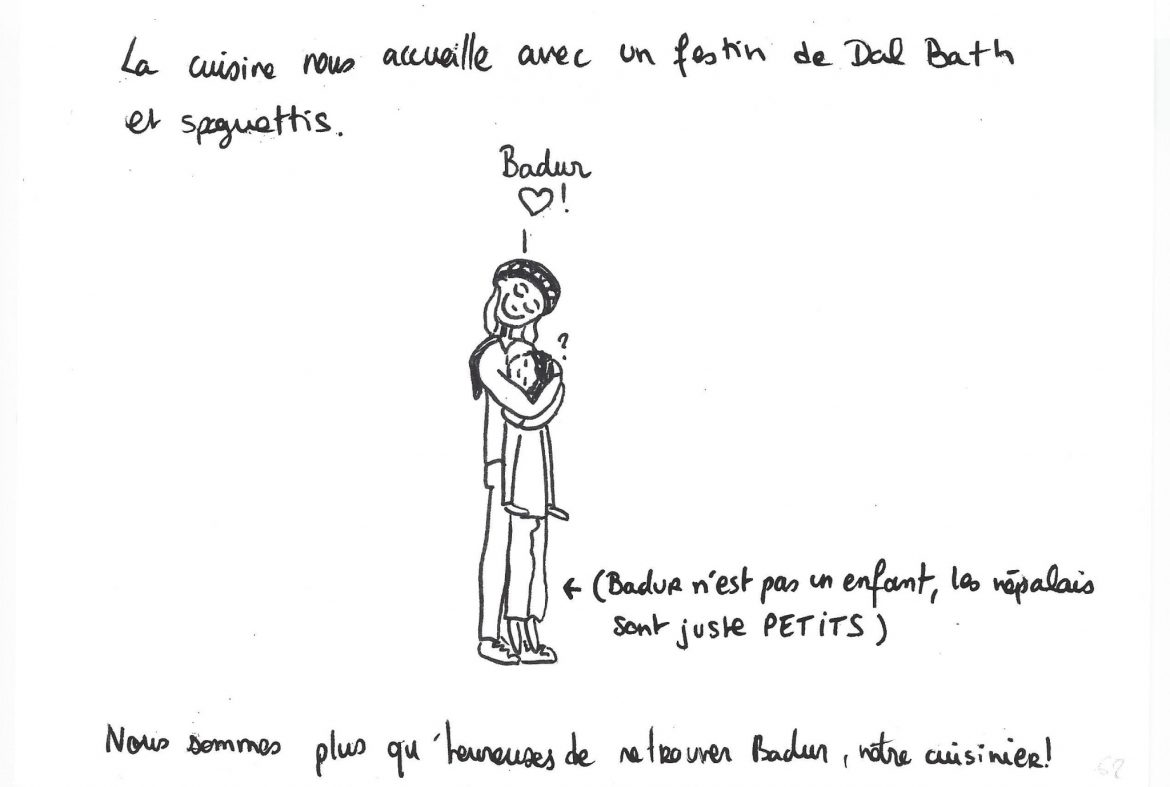 La cuisine nous accueille avec un festin de Dal Bath
et spaguettis.
Badur
♡!
?
← (Badur n'est pas un enfant, les népalais
sont juste PETITS)
Nous sommes plus qu'heureuses de retrouver Badur, notre cuisinier!
52